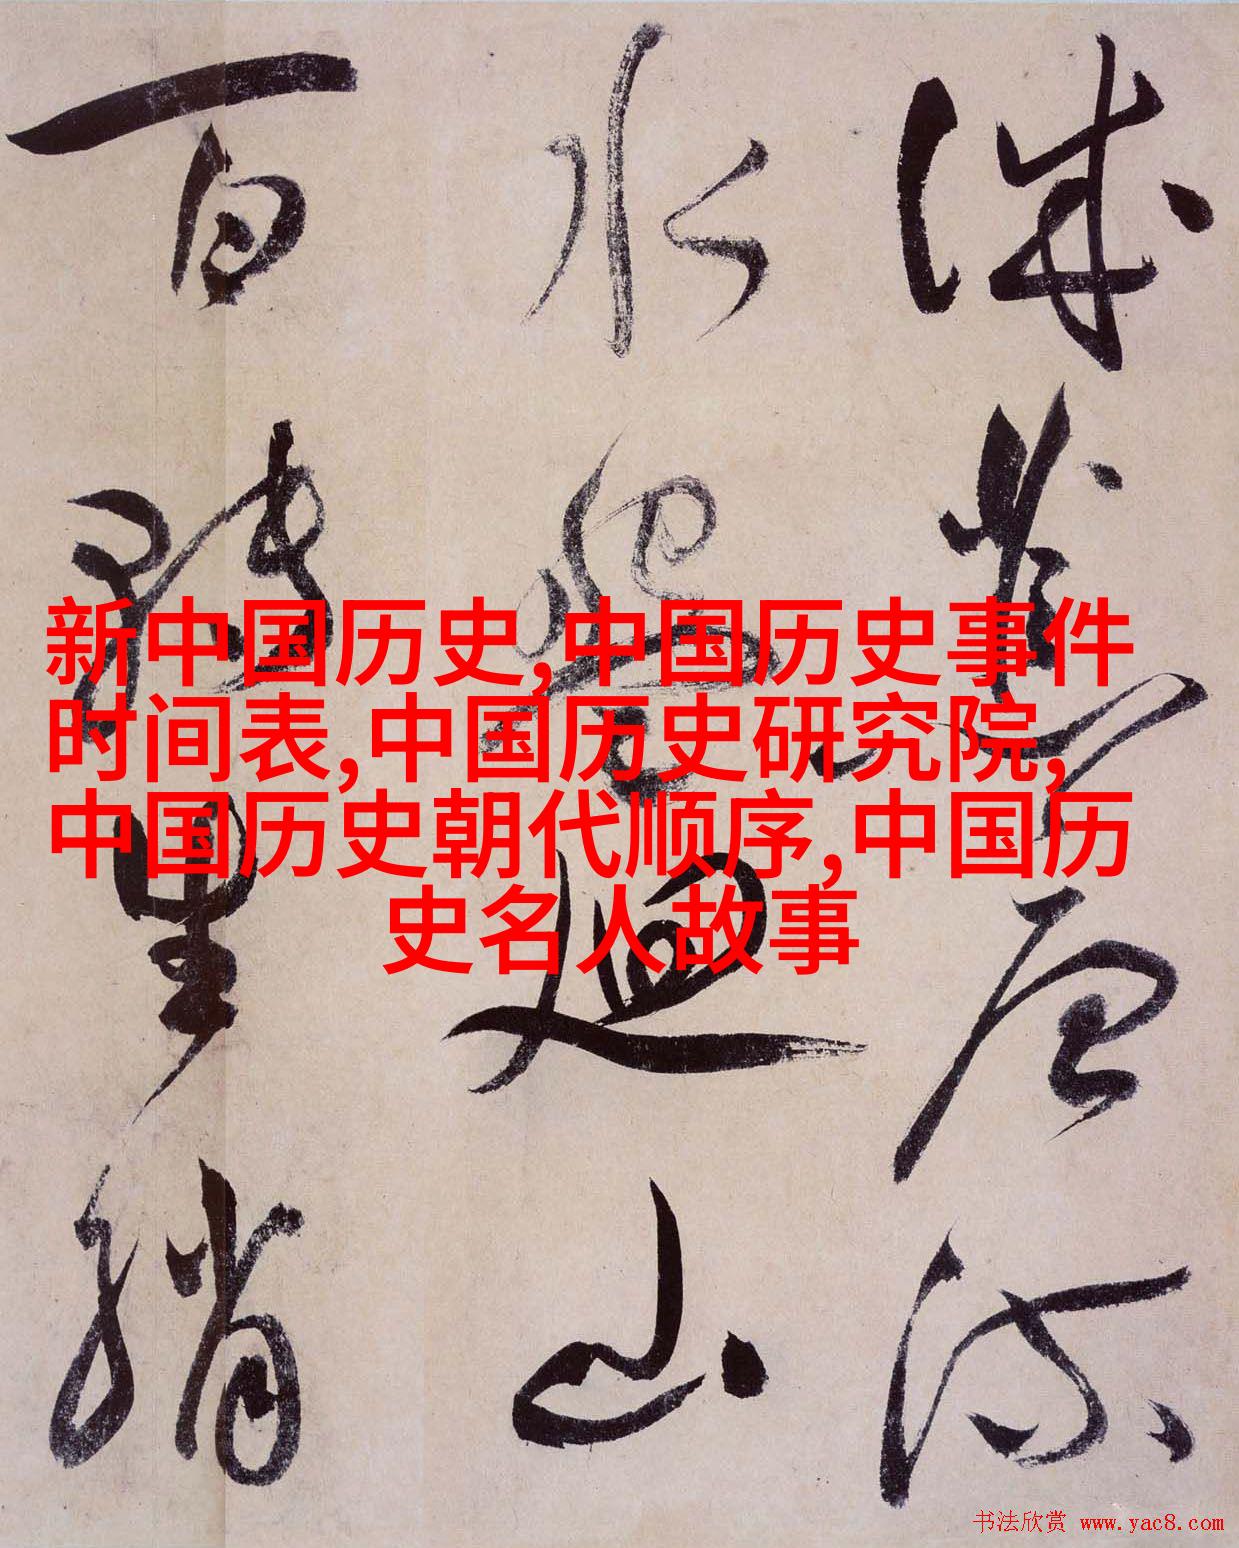 新中国历史,中国历史事件
时间表,中国历史研究院,
中国历史朝代顺序,中国历
史名人故事
誠荒唐流
水盤迴山
百轉生綃
书法欣赏 www.yac8.com